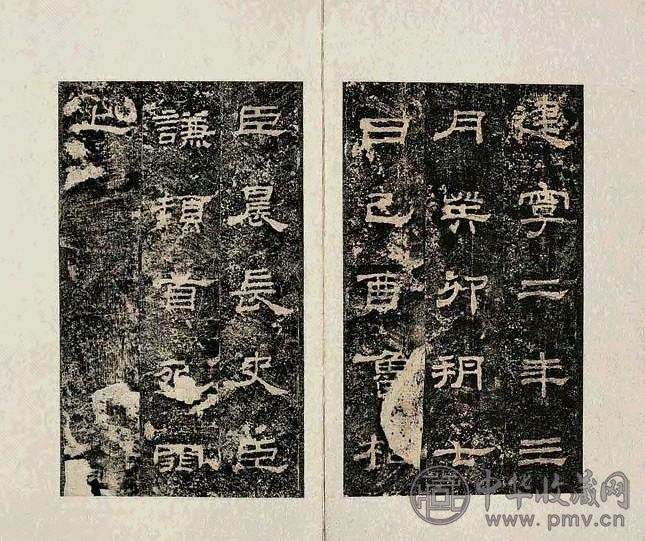 建寧二年三
月癸卯朔七
日己酉魯相
臣晨長史臣
謙頓首死罪
上
中华收藏网
www.pmv.cn